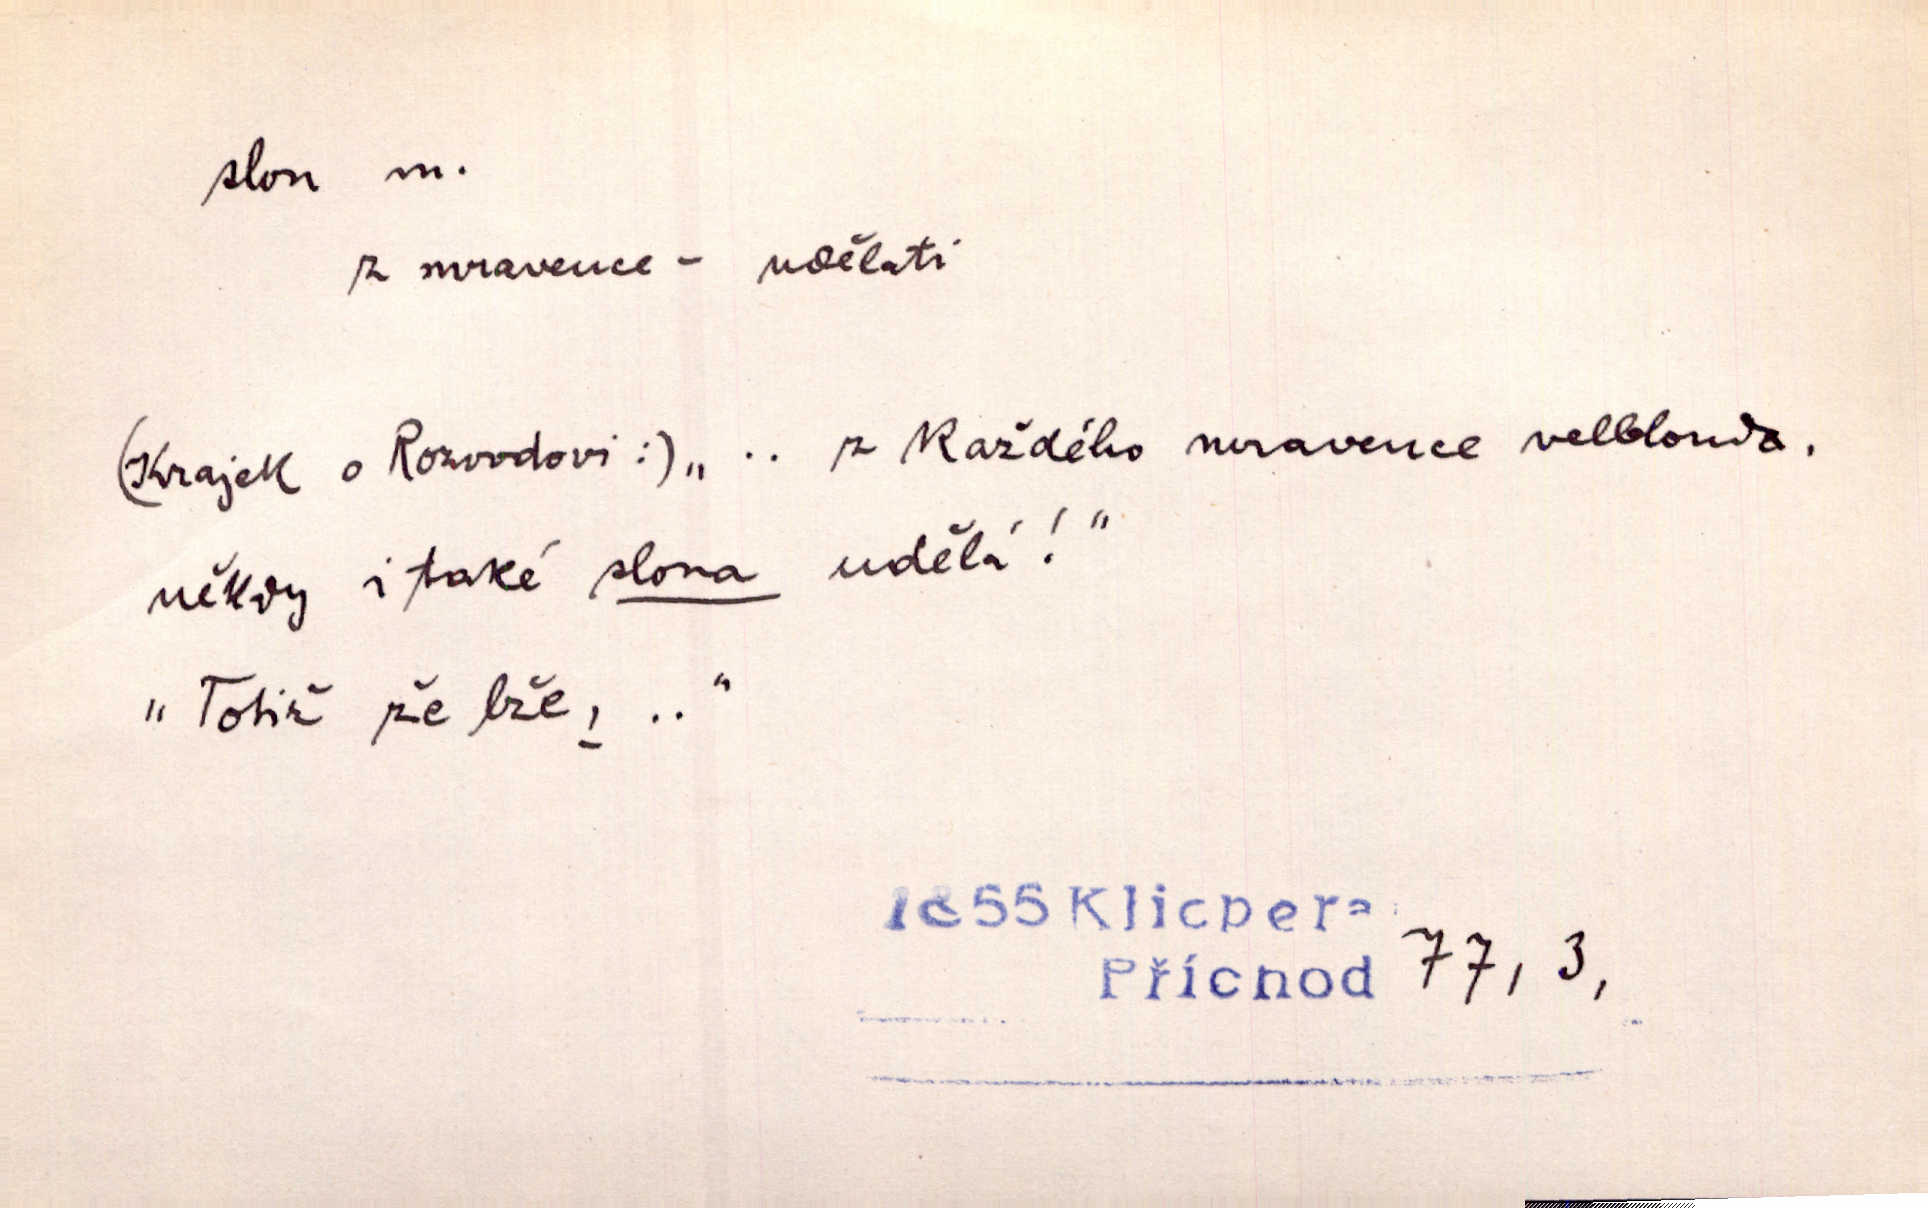 slon m.
z mravence - udělati
(Krajek o Rozvodovi:) „ .. z každého mravence velblouda,
někdy i také slona udělá!"
„Totiž že lže, .."
1855 Klicpera
Příchod 77, 3,